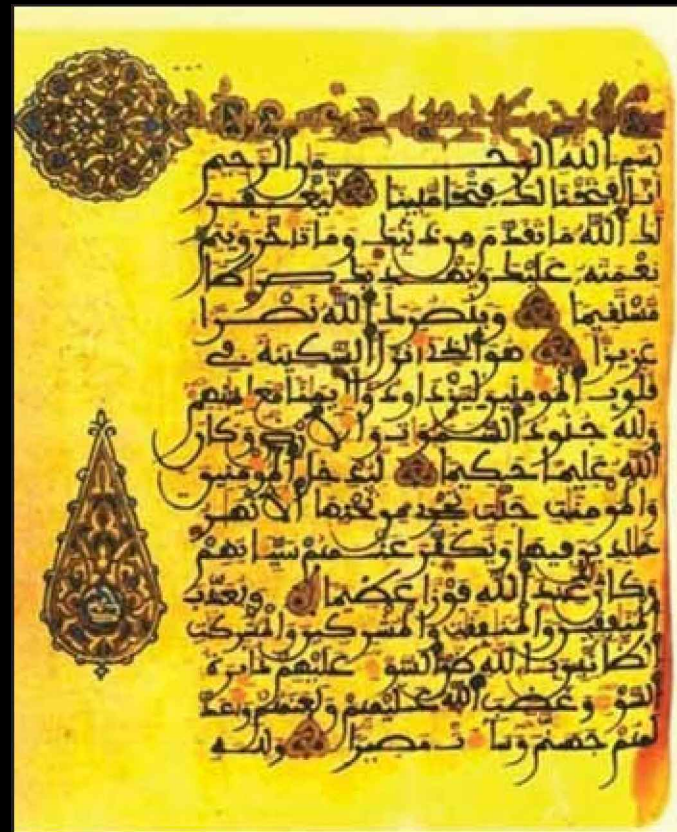 بسم الله الرحمن الرحيم
انا فتحنا لك فتحا مبينا ليغفر
لك الله ما تقدم من ذنبك وما تاخر ويتم
نعمته عليك ويهديك صراطا
مستقيما وينصرك الله نصرا
عزيزا هو الذي انزل السكينة في
قلوب المومنين ليزدادوا ايمنا مع ايمنهم
ولله جنود السموات والارض وكان
الله عليما حكيما ليدخل المومنين
والمومنت جنت تجري من تحتها الانهر
خلدين فيها ويكفر عنهم سياتهم
وكان ذلك عند الله فوزا عظيما ويعذب
المنفقين والمنفقت والمشركين والمشركت
الظانين بالله ظن السوء عليهم دايرة
السوء وغضب الله عليهم ولعنهم واعد
لهم جهنم وساءت مصيرا ولله